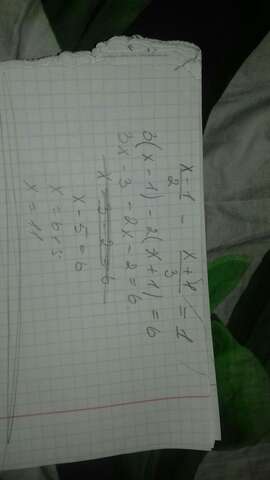 x-1/2 - x+1/3 = 1
3(x-1)-2(x+1)=6
3x-3-2x-2=6
x-3-2=6
x-5=6
x=6+5
x=11